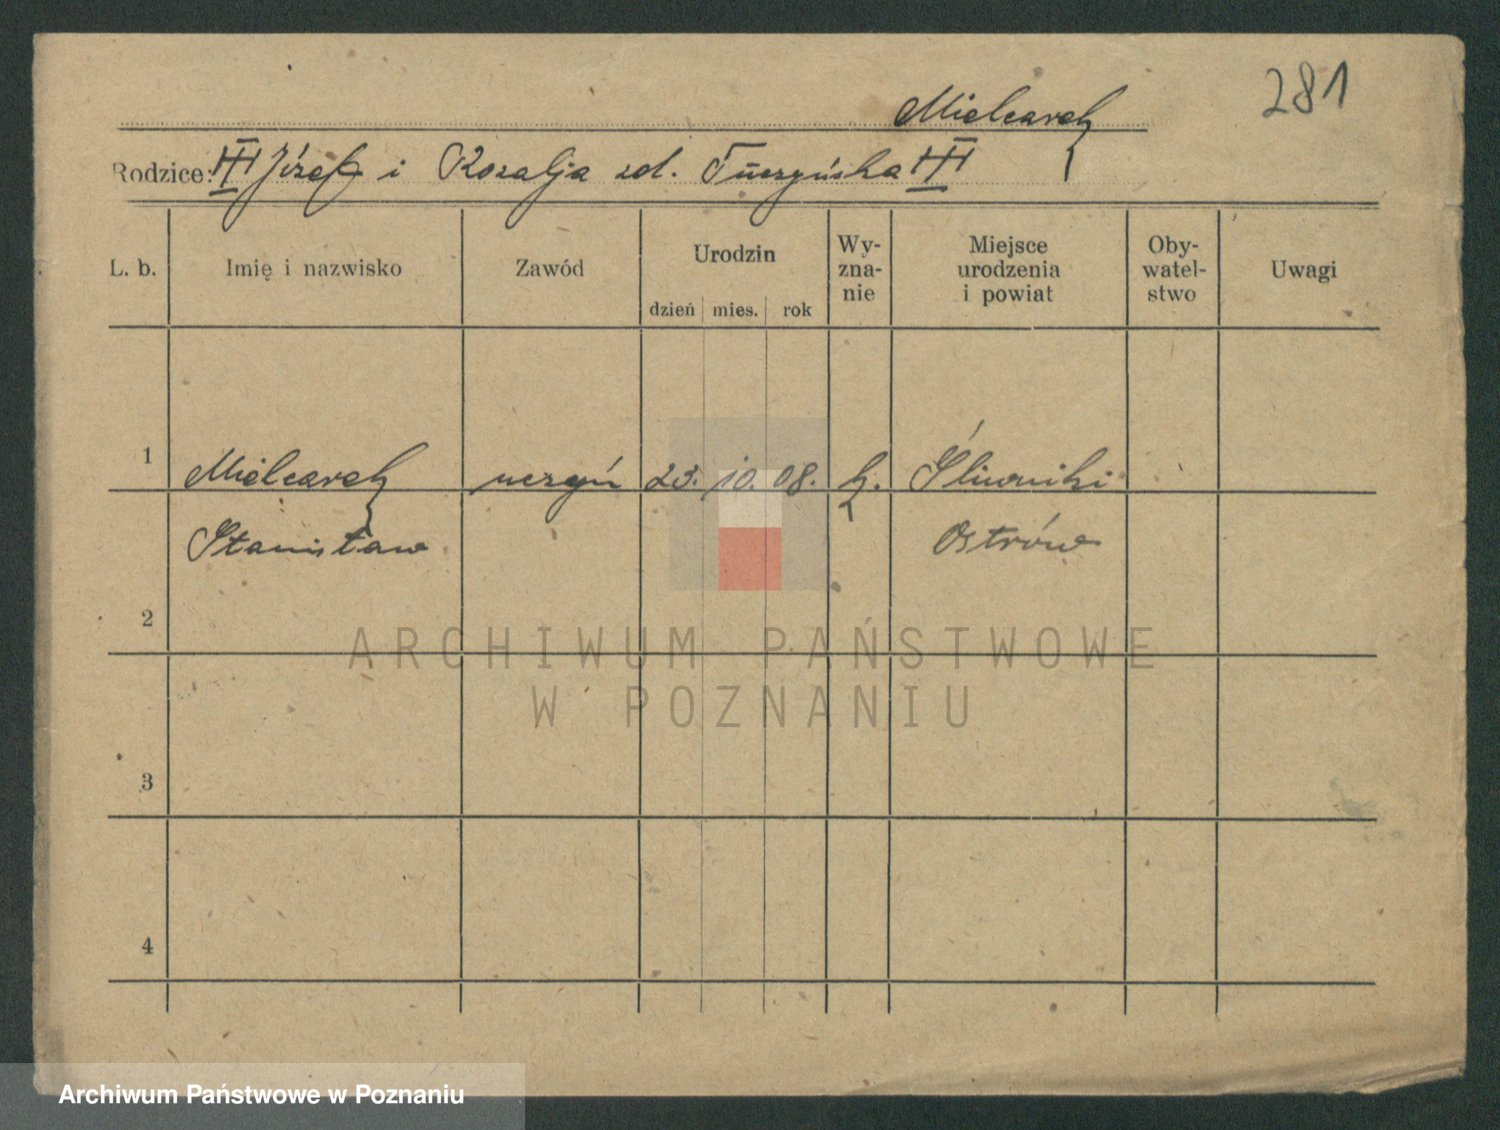 281
Mielcarek
Rodzice: Józef i Rozalja zd. Tuczyńska
L. b. Imię i nazwisko Zawód Urodzin Wy-zna-nie Miejsce urodzenia i powiat Oby-watel-stwo Uwagi
dzień mies. rok
1 Mielcarek uczeń 23. 10. 08. k. Śliwniki
Stanisław Ostrów
2
ARCHIWUM PAŃSTWOWE
W POZNANIU
3
4
Archiwum Państwowe w Poznaniu